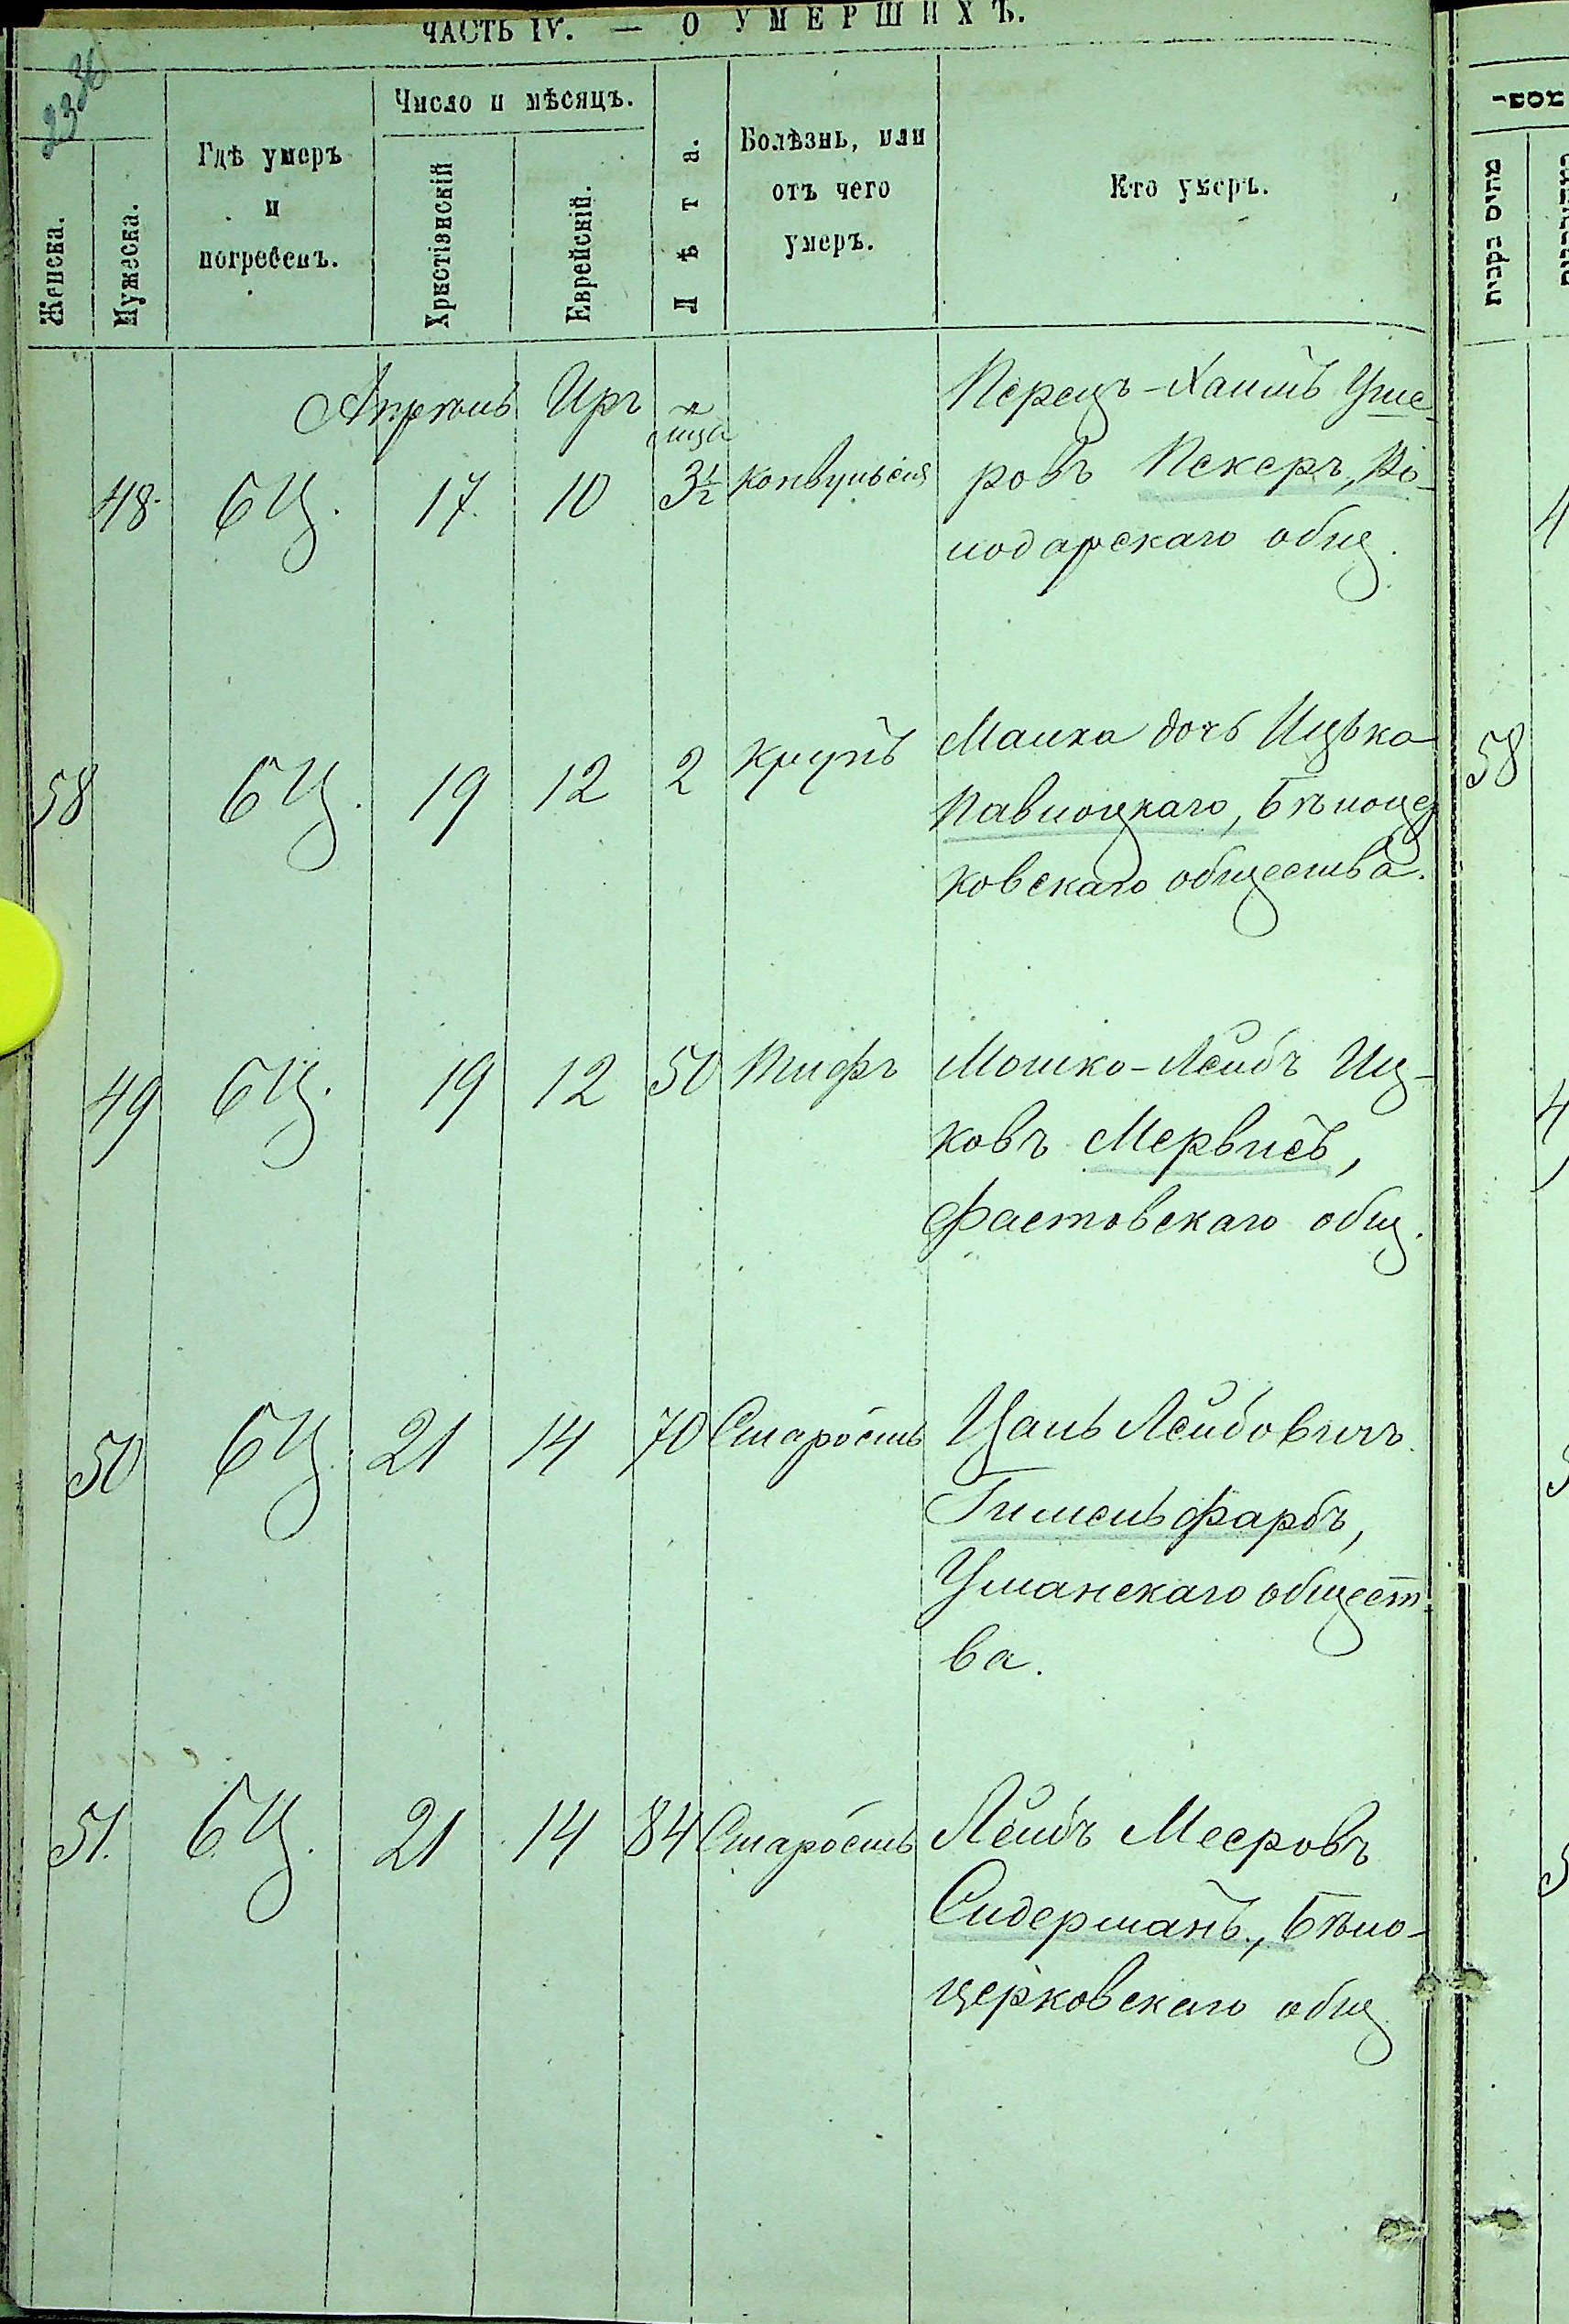 ЧАСТЬ IV. — О УМЕРШИХЪ.
Женска.
Мужеска.
Гдѣ умеръ
и
погребенъ.
Число и мѣсяцъ.
Христіянскій
Еврейскій.
Лѣта.
Болѣзнь, или
отъ чего
умеръ.
Кто умеръ.
Апрѣль Иръ
48. БЦ. 17. 10 3½ конвульсія
Перецъ-Хаимъ Уше-
ровъ Пекеръ,
подарскаго общ.
58 БЦ. 19 12 2 крупъ
Малка дочь Ицька
Павлоцкаго, Бѣлоцер
ковскаго общества.
49 БЦ. 19 12 50 Тифъ
Мошко-Лейбъ Иц-
ковъ Мервисъ,
Фастовскаго общ.
50 БЦ. 21 14 70 Старость
Цаль Лейбовичъ
Гимельфарбъ,
Уманскаго общест
ва.
51. БЦ. 21 14 84 Старость
Лейбъ Мееровъ
Сидерманъ, Бѣло-
церковскаго общ.
58